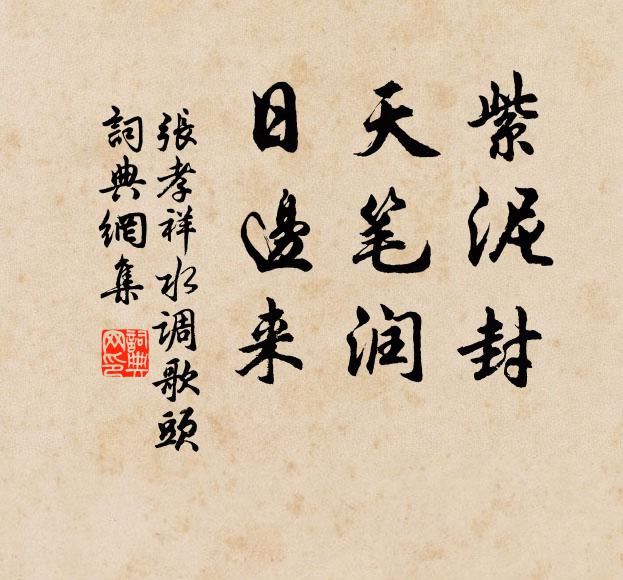 紫泥封
天笔润
日邊来
張孝祥水调歌頭
詞典網集
詞典网印